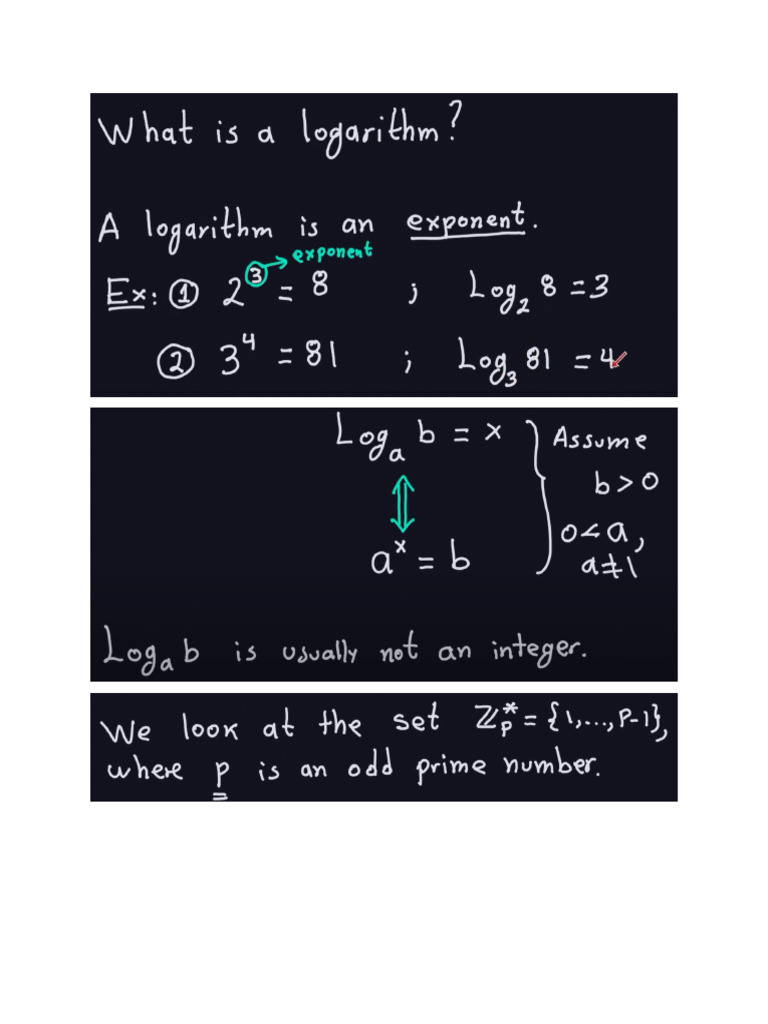 What is a logarithm?
A logarithm is an exponent.
exponent
Ex: ① 2³ = 8 ; Log₂ 8 = 3
② 3⁴ = 81 ; Log₃ 81 = 4
Logₐ b = x
Assume
b > 0
⇕
0 < a,
aˣ = b
a ≠ 1
Logₐ b is usually not an integer.
We look at the set ℤₚ* = {1,..., P-1},
where p is an odd prime number.